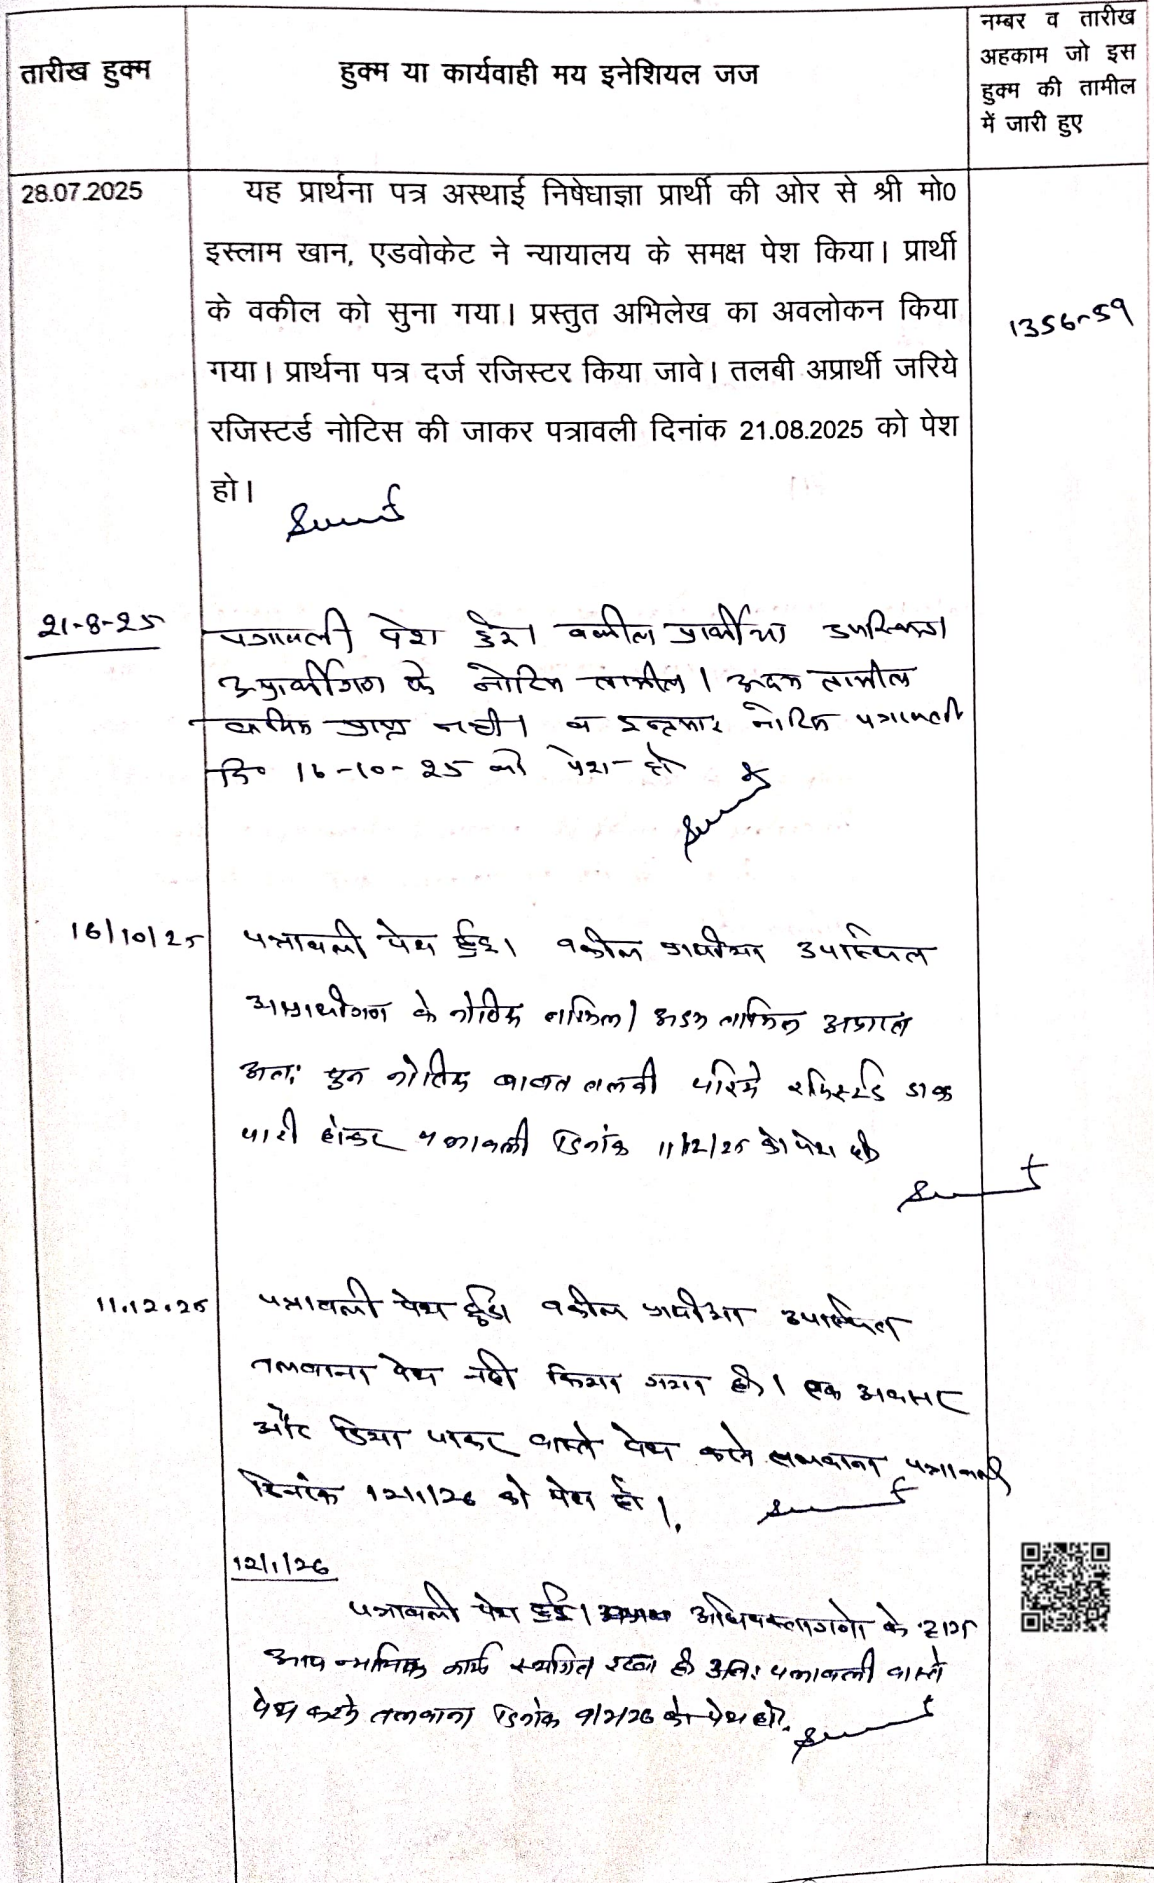 तारीख हुक्म
हुक्म या कार्यवाही मय इनेशियल जज
नम्बर व तारीख
अहकाम जो इस
हुक्म की तामील
में जारी हुए
28.07.2025
यह प्रार्थना पत्र अस्थाई निषेधाज्ञा प्रार्थी की ओर से श्री मो0
इस्लाम खान, एडवोकेट ने न्यायालय के समक्ष पेश किया। प्रार्थी
के वकील को सुना गया। प्रस्तुत अभिलेख का अवलोकन किया
गया। प्रार्थना पत्र दर्ज रजिस्टर किया जावे। तलबी अप्रार्थी जरिये
रजिस्टर्ड नोटिस की जाकर पत्रावली दिनांक 21.08.2025 को पेश
हो।
1356-59
21-8-25
पत्रावली पेश हुई। वकील प्रार्थीया उपस्थित।
अप्रार्थीगण के नोटिस तामील। अदम तामील
प्राप्त नहीं। व इन्तजार नोटिस पत्रावली
दि० 16-10-25 को पेश हो
16/10/25
पत्रावली पेश हुई। वकील प्रार्थीया उपस्थित
अप्रार्थीगण के नोटिस तामिल। अदम तामिल अप्राप्त
अतः पुन नोटिस बाबत तलबी जरिये रजिस्टर्ड डाक
जारी होकर पत्रावली दिनांक 11/12/25 को पेश हो
11.12.25
पत्रावली पेश हुई। वकील प्रार्थीया उपस्थित
तलवाना पेश नही किया गया है। एक अवसर
और दिया जाकर वास्ते पेश करने तलवाना पत्रावली
दिनांक 12/1/26 को पेश हो।
12/1/26
पत्रावली पेश हुई। अधिवक्तागणो के द्वारा
आज न्यायिक कार्य स्थगित रखा है अतः पत्रावली वास्ते
पेश करने तलवाना दिनांक 9/2/26 को पेश हो।